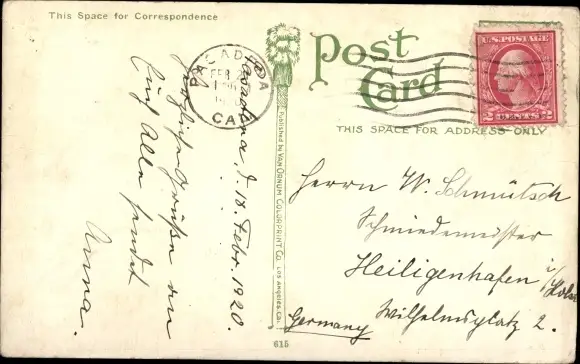 This Space for Correspondence
Pasadena, d. 18. Febr. 1920.
Herzliche Grüße an
Euch Alle sendet
Anna.
PASADENA
FEB
CAL
Published by VAN ORNUM COLORPRINT CO. LOS ANGELES, CAL.
615
Post
Card
THIS SPACE FOR ADDRESS ONLY
U.S. POSTAGE
2 CENTS 2
Herrn W. Schmütsch
Schmiedemeister
Heiligenhafen i/Hols
Wilhelmsplatz 2.
Germany